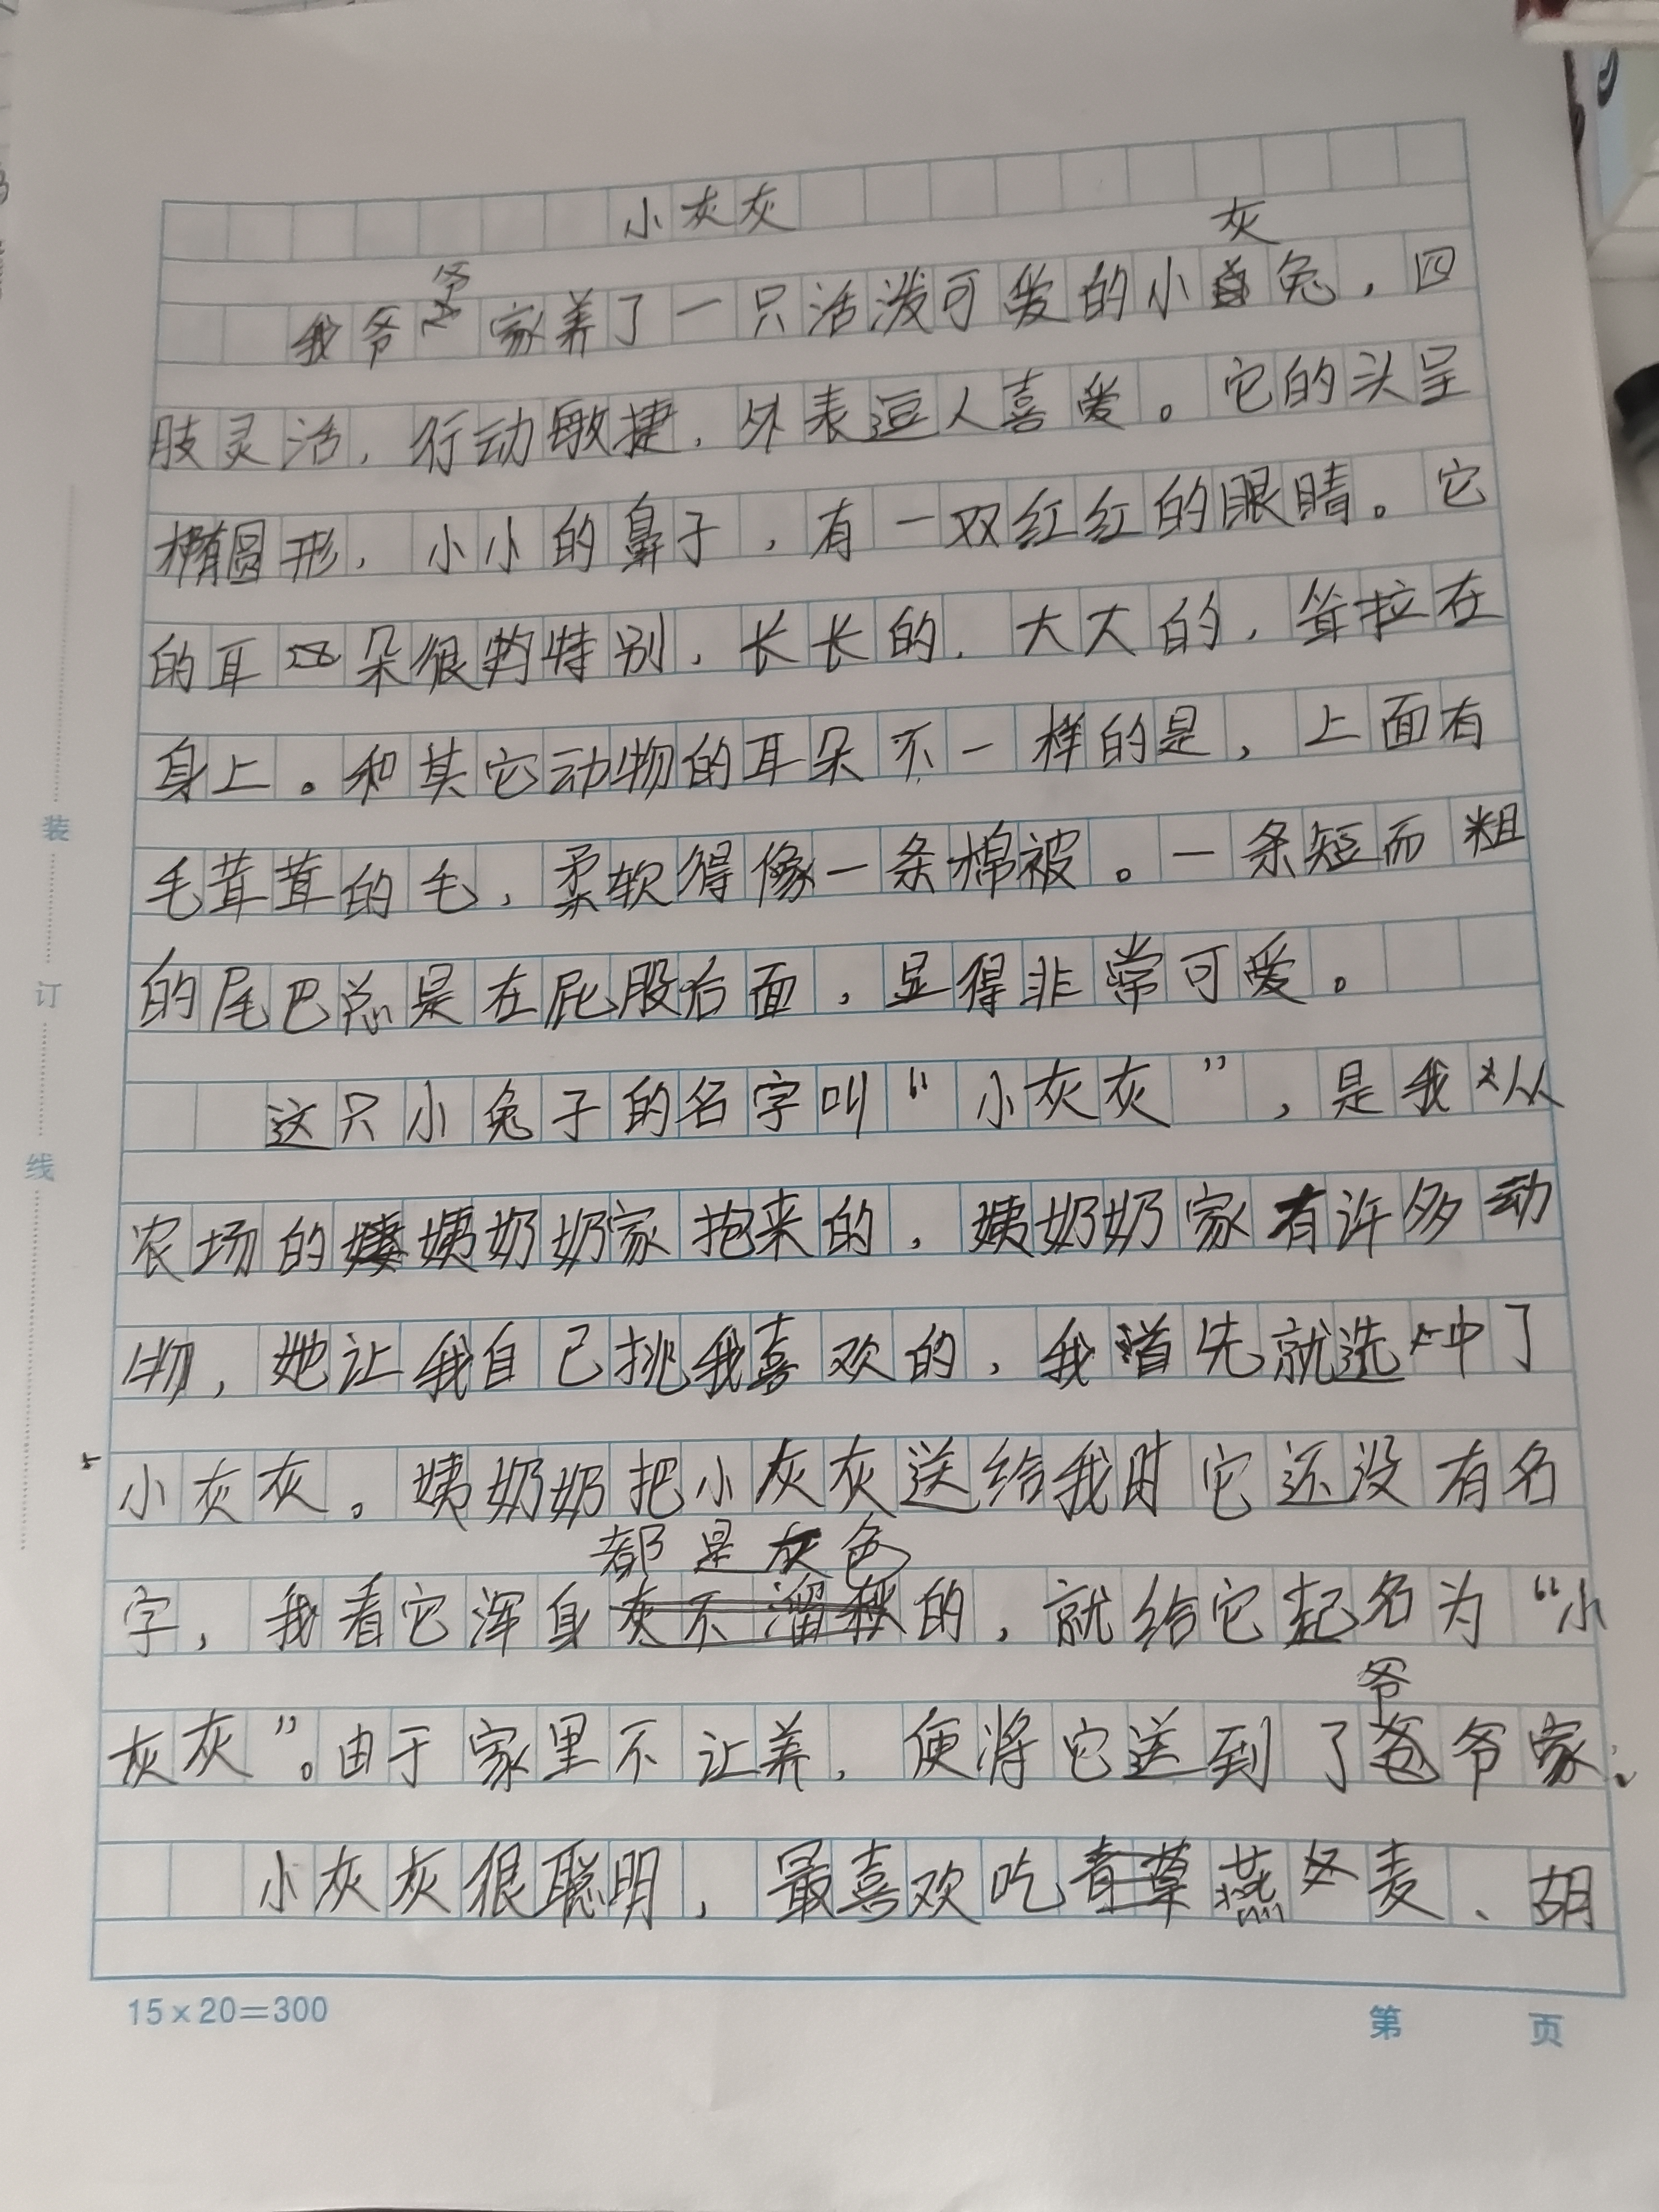 小灰灰
我爷爷家养了一只活泼可爱的小灰兔，四
肢灵活，行动敏捷，外表逗人喜爱。它的头呈
椭圆形，小小的鼻子，有一双红红的眼睛。它
的耳朵很特别，长长的，大大的，耸拉在
身上。和其它动物的耳朵不一样的是，上面有
毛茸茸的毛，柔软得像一条棉被。一条短而粗
的尾巴总是在屁股后面，显得非常可爱。
这只小兔子的名字叫“小灰灰”，是我从
农场的姨奶奶家抱来的，姨奶奶家有许多动
物，她让我自己挑我喜欢的，我首先就选中了
小灰灰。姨奶奶把小灰灰送给我时它还没有名
字，我看它浑身都是灰色的，就给它起名为“小
灰灰”。由于家里不让养，便将它送到了爷爷家。
小灰灰很聪明，最喜欢吃燕麦、胡
装
订
线
15×20=300
第 页